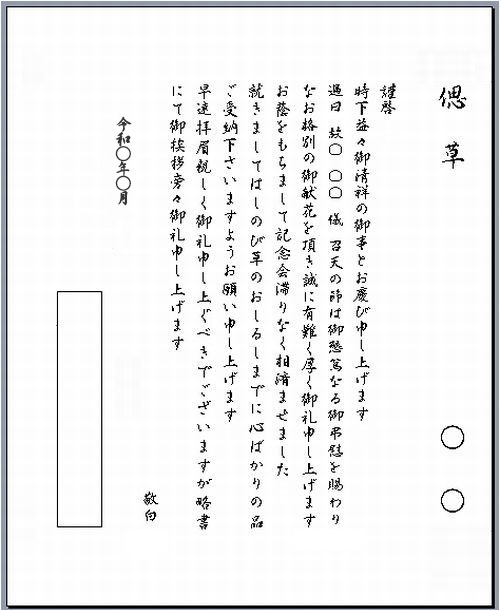 偲草 〇〇
謹啓
時下益々御清祥の御事とお慶び申し上げます
過日 故〇 〇〇 儀 召天の節は御懇篤なる御弔慰を賜わり
なお格別の御献花を頂き誠に有難く厚く御礼申し上げます
お蔭をもちまして記念会滞りなく相済ませました
就きましてはしのび草のおしるしまでに心ばかりの品
ご受納下さいますようお願い申し上げます
早速拝眉親しく御礼申し上ぐべきでございますが略書
にて御挨拶旁々御礼申し上げます
敬白
令和〇年〇月